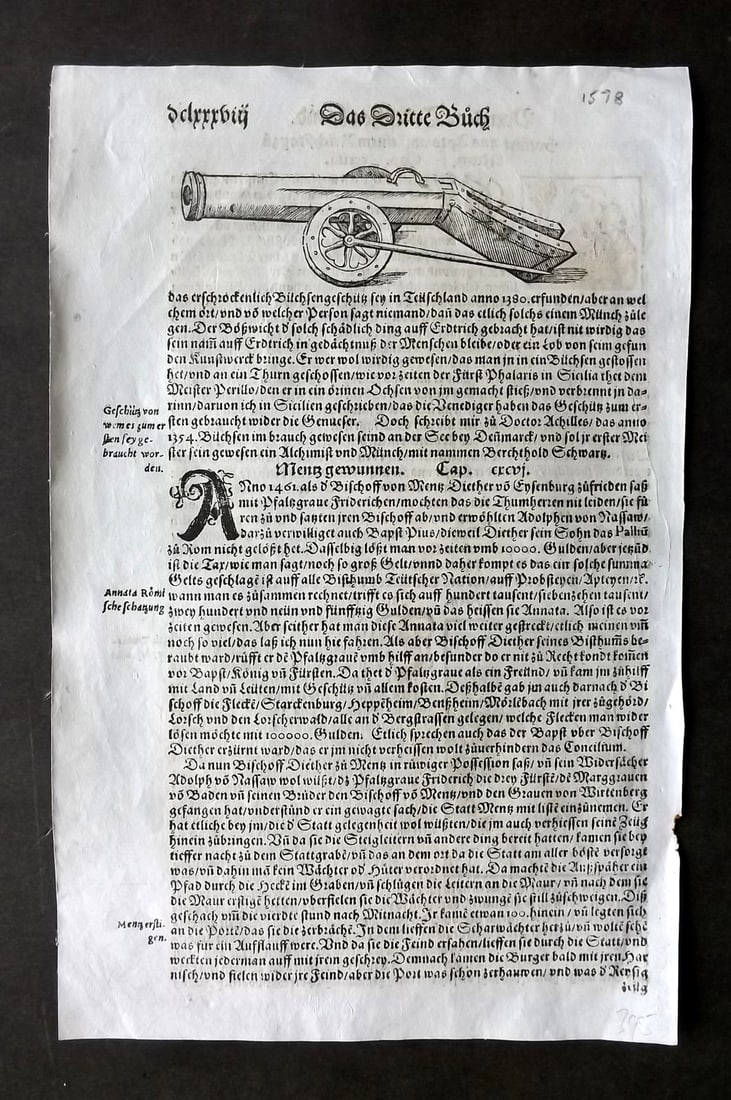 dclxxxviij Das Dritte Bůch 1598
das erschrockenlich Büchsengeschütz sey in Teütschland anno 1380. erfunden/ aber an wel
chem ort/ und vō welcher Person sagt niemand/ dañ das etlich solchs einem Münch zůle
gen. Der Bößwicht d solch schädlich ding auff Erdtrich gebracht hat/ ist nit wirdig das
sein nam̃ auff Erdtrich in gedächtnuß der Menschen bleibe/ oder ein Lob von seim gefun
den Kunstwerck bringe. Er wer wol wirdig gewesen/ das man jn in ein Büchsen gestossen
het/ und an ein Thurn geschossen/ wie vor zeiten der Fürst Phalaris in Sicilia thet dem
Meister Perillo/ den er in ein örinen Ochsen von jm gemacht stieß/ und verbrennt jn da-
rinn/ daruon ich in Sicilien geschrieben/ das die Venediger haben das Geschütz zum er-
sten gebraucht wider die Genueser. Doch schreibt mir zů Doctor Achilles/ das anno
1354. Büchsen im brauch gewesen seind an der See bey Deñmarck/ und sol jr erster Mei
ster sein gewesen ein Alchimist vnd Münch/ mit nammen Berchthold Schwartz.
Geschütz von
wem es zum er
sten sey ge-
braucht wor-
den.
Mentz gewunnen. Cap. cxcvj.
ANno 1461. als d Bischoff von Mentz Diether vō Eysenburg zůfrieden saß
mit Pfaltzgraue Friderichen/ mochten das die Thumherren nit leiden/ sie fů
ren zů und satzten jren Bischoff ab/ und erwöhlten Adolphen von Nassaw/
darzů verwilliget auch Bapst Pius/ dieweil Diether sein Sohn das Palliũ
zů Rom nicht gelößt het. Dasselbig lößt man vor zeiten vmb 10000. Gulden/ aber jetzũd
ist die Tax/ wie man sagt/ noch so groß Gelt/ vnnd daher kompt es das ein solche summa
Gelts geschlagē ist auff alle Bisthumb Teütscher Nation/ auff Probsteyen/ Apteyen/ ꝛc.
wann man es zůsammen rechnet/ trifft es sich auff hundert tausent/ siebenzehen tausent/
zwey hundert vnd neün vnd fünfftzig Gulden/ vñ das heissen sie Annata. Also ist es vor
zeiten gewesen. Aber seither hat man diese Annata viel weiter gestreckt/ etlich meinen vm̃
noch so viel/ das laß ich nun hie fahren. Als aber Bischoff Diether seines Bisthum̃s be-
raubt ward/ růfft er dē Pfaltzgraue vmb hilff an/ besunder do er nit zů Recht kondt kom̃en
vor Bapst/ König vñ Fürsten. Da thet d Pfaltzgraue als ein Freünd/ vñ kam jm zůhilff
mit Land vñ Leüten/ mit Geschütz vñ allem kosten. Deßhalbē gab jm auch darnach d Bi
schoff die Fleckē/ Starckenburg/ Heppēheim/ Benßheim/ Mörlēbach mit jrer zůgehörd/
Lorsch vnd den Lorscherwald/ alle an d Bergstrassen gelegen/ welche Flecken man wider
lösen möchte mit 100000. Gulden. Etlich sprechen auch das der Bapst vber Bischoff
Diether erzürnt ward/ das er jm nicht verheissen wolt zůuerhindern das Concilium.
Annata Römi
sche schatzung
Da nun Bischoff Diether zů Mentz in růwiger Possession saß/ vñ sein Widersächer
Adolph vō Nassaw wol wüßt/ dz Pfaltzgraue Friderich die drey Fürstē/ dē Marggrauen
vō Baden vñ seinen Brůder den Bischoff vō Mentz/ vnd den Grauen von Wirtenberg
gefangen hat/ vnderstůnd er ein gewagte sach/ die Statt Mentz mit listē einzůnemen. Er
hat etliche bey jm/ die d Statt gelegenheit wol wüßten/ die jm auch verhiessen seinē Zeüg
hinein zůbringen. Vñ da sie die Steigleitern vñ andere ding bereit hatten/ kamen sie bey
tieffer nacht zů dem Stattgrabē/ vñ das an dem ort da die Statt am aller bösťē versorgt
was/ vñ dahin mā kein Wächter od Hůter verordnet hat. Da machtē die Außspäher ein
Pfad durch die Heckē im Graben/ vñ schlůgen die Leitern an die Maur/ vñ nach dem sie
die Maur erstigē hetten/ vberfielen sie die Wächter vnd zwungē sie still zůschweigen. Diß
geschach vm̃ die vierdte stund nach Mitnacht. Jr kamē etwan 100. hinein/ vñ legten sich
an die Portē/ das sie die zerbrächē. In dem lieffen die Scharwächter herzů/ vñ woltē sehē
was für ein Aufflauff were. Vnd da sie die Feind ersahen/ lieffen sie durch die Statt/ vnd
weckten jederman auff mit jrem geschrey. Demnach kamen die Burger bald mit jren Har
nisch/ vnd fielen wider jre Feind/ aber die Port was schon zerhauwen/ vnd was d Reysig
Mentz ersti-
gen.
zeüg
395